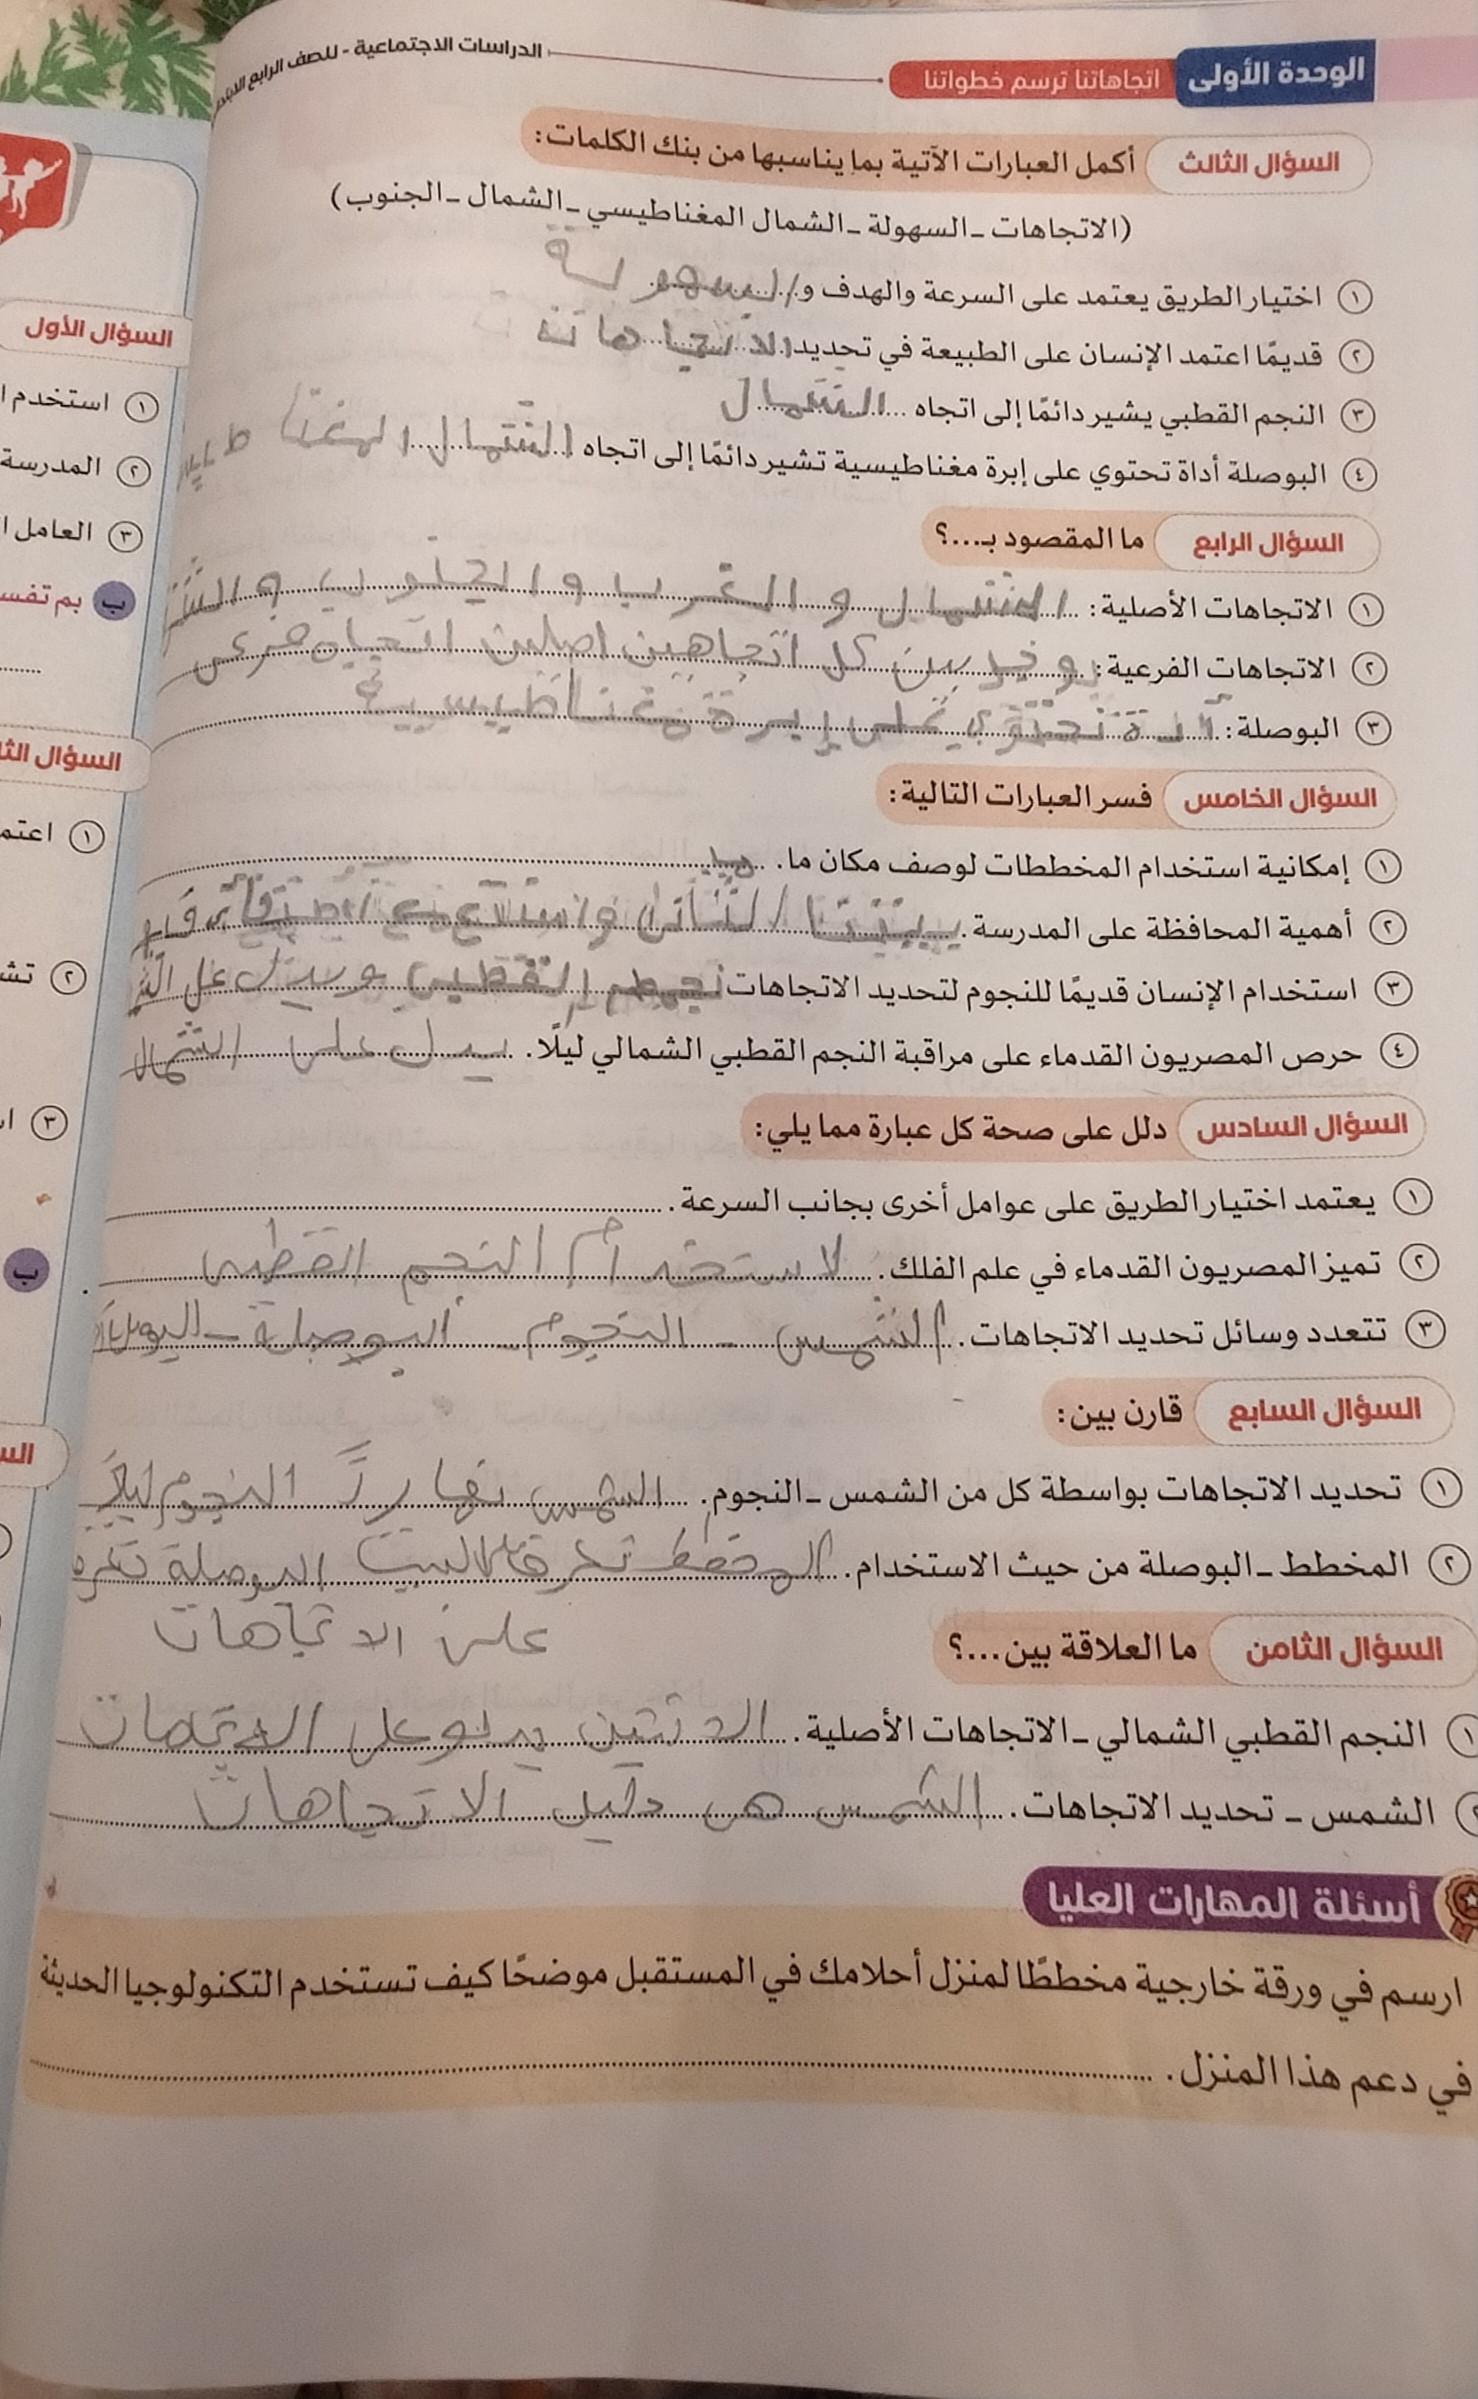 الدراسات الاجتماعية - للصف الرابع
الوحدة الأولى اتجاهاتنا ترسم خطواتنا
السؤال الثالث أكمل العبارات الآتية بما يناسبها من بنك الكلمات:
(الاتجاهات - السهولة - الشمال المغناطيسي - الشمال - الجنوب)
١ اختيار الطريق يعتمد على السرعة والهدف و السهولة
٢ قديمًا اعتمد الإنسان على الطبيعة في تحديد الاتجاهات
٣ النجم القطبي يشير دائمًا إلى اتجاه الشمال
٤ البوصلة أداة تحتوي على إبرة مغناطيسية تشير دائمًا إلى اتجاه الشمال
السؤال الرابع ما المقصود بـ....؟
١ الاتجاهات الأصلية: الشمال و الغرب و الجنوب و
٢ الاتجاهات الفرعية: يوجد بين كل اتجاهين اصلين اتجاه فرعى
٣ البوصلة: تحتوي على إبرة مغناطيسية
السؤال الخامس فسر العبارات التالية:
١ إمكانية استخدام المخططات لوصف مكان ما.
٢ أهمية المحافظة على المدرسة. بيتنا الثانى
٣ استخدام الإنسان قديمًا للنجوم لتحديد الاتجاهات القطبى
٤ حرص المصريون القدماء على مراقبة النجم القطبي الشمالي ليلًا. يدل على الشمال
السؤال السادس دلل على صحة كل عبارة مما يلي:
١ يعتمد اختيار الطريق على عوامل أخرى بجانب السرعة.
٢ تميز المصريون القدماء في علم الفلك. لاستخدام النجم القطبى
٣ تتعدد وسائل تحديد الاتجاهات. الشمس - النجوم - البوصلة -
السؤال السابع قارن بين:
١ تحديد الاتجاهات بواسطة كل من الشمس - النجوم. الشمس نهاراً النجوم ليلاً
٢ المخطط - البوصلة من حيث الاستخدام. المخطط البيت البوصلة
على الاتجاهات
السؤال الثامن ما العلاقة بين....؟
١ النجم القطبي الشمالي - الاتجاهات الأصلية. الاتنين يدلو على الاتجاهات
٢ الشمس - تحديد الاتجاهات. الشمس هى دليل الاتجاهات
أسئلة المهارات العليا
ارسم في ورقة خارجية مخططًا لمنزل أحلامك في المستقبل موضحًا كيف تستخدم التكنولوجيا الحديثة
في دعم هذا المنزل.
السؤال الأول
١ استخدم
٢ المدرسة
٣ العامل
ب بم
السؤال
١
٢
٣
ب